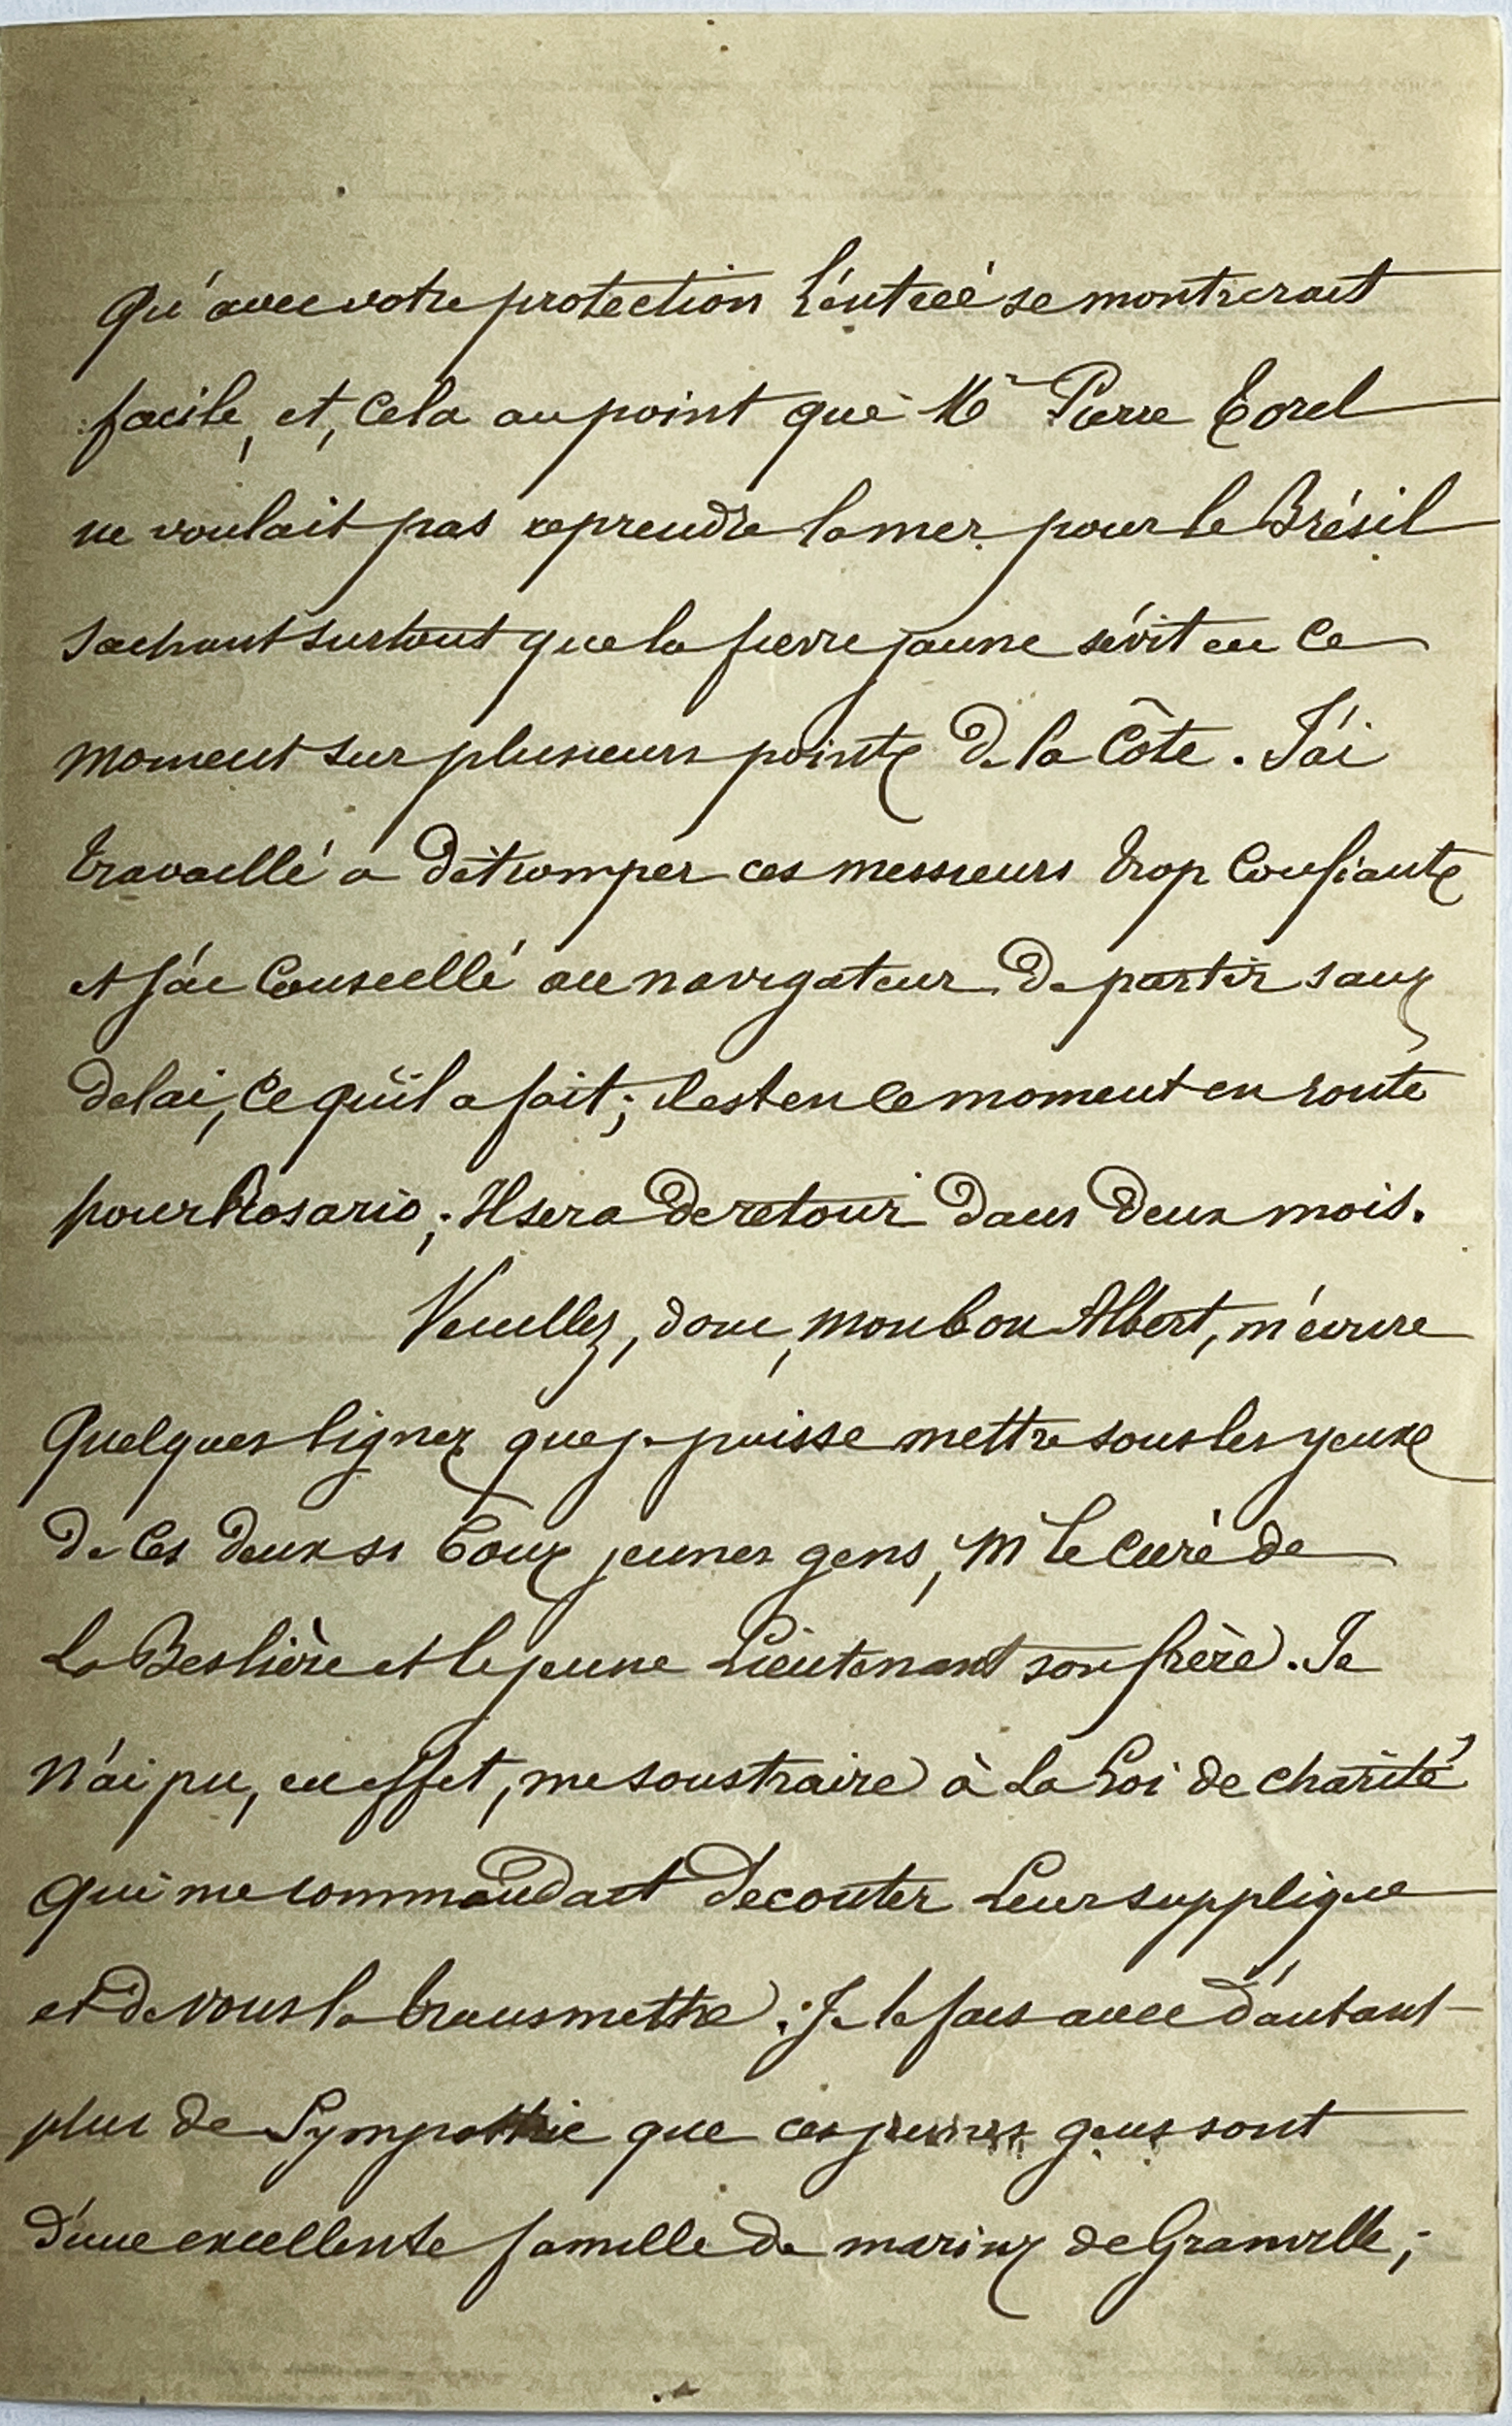 qu'avec votre protection l'entreé se montrerait
facile, et, cela au point que Mr Pierre Eorel
ne voulait pas reprendre la mer pour le Brésil
sachant surtout que la fievre jaune sévit en ce
moment sur plusieurs points de la Côte. J'ai
travaillé a détromper ces messieurs trop confiants
et j'ai conseillé au navigateur de partir sans
delai, ce qu'il a fait; il est en ce moment en route
pour Rosario; Il sera de retour dans deux mois.
Veuillez, donc, mon bon Albert, m'écrire
quelques lignes que je puisse mettre sous les yeux
de ces deux si bons jeunes gens, Mr le curé de
La Beslière et le jeune Lieutenant son frère. Je
n'ai pu, en effet, me soustraire à la loi de charité
qui me commandait d'ecouter leur supplique
et de vous la transmettre; Je le fais avec d'autant
plus de sympathie que ces jeunes gens sont
d'une excellente famille de marins de Granville;